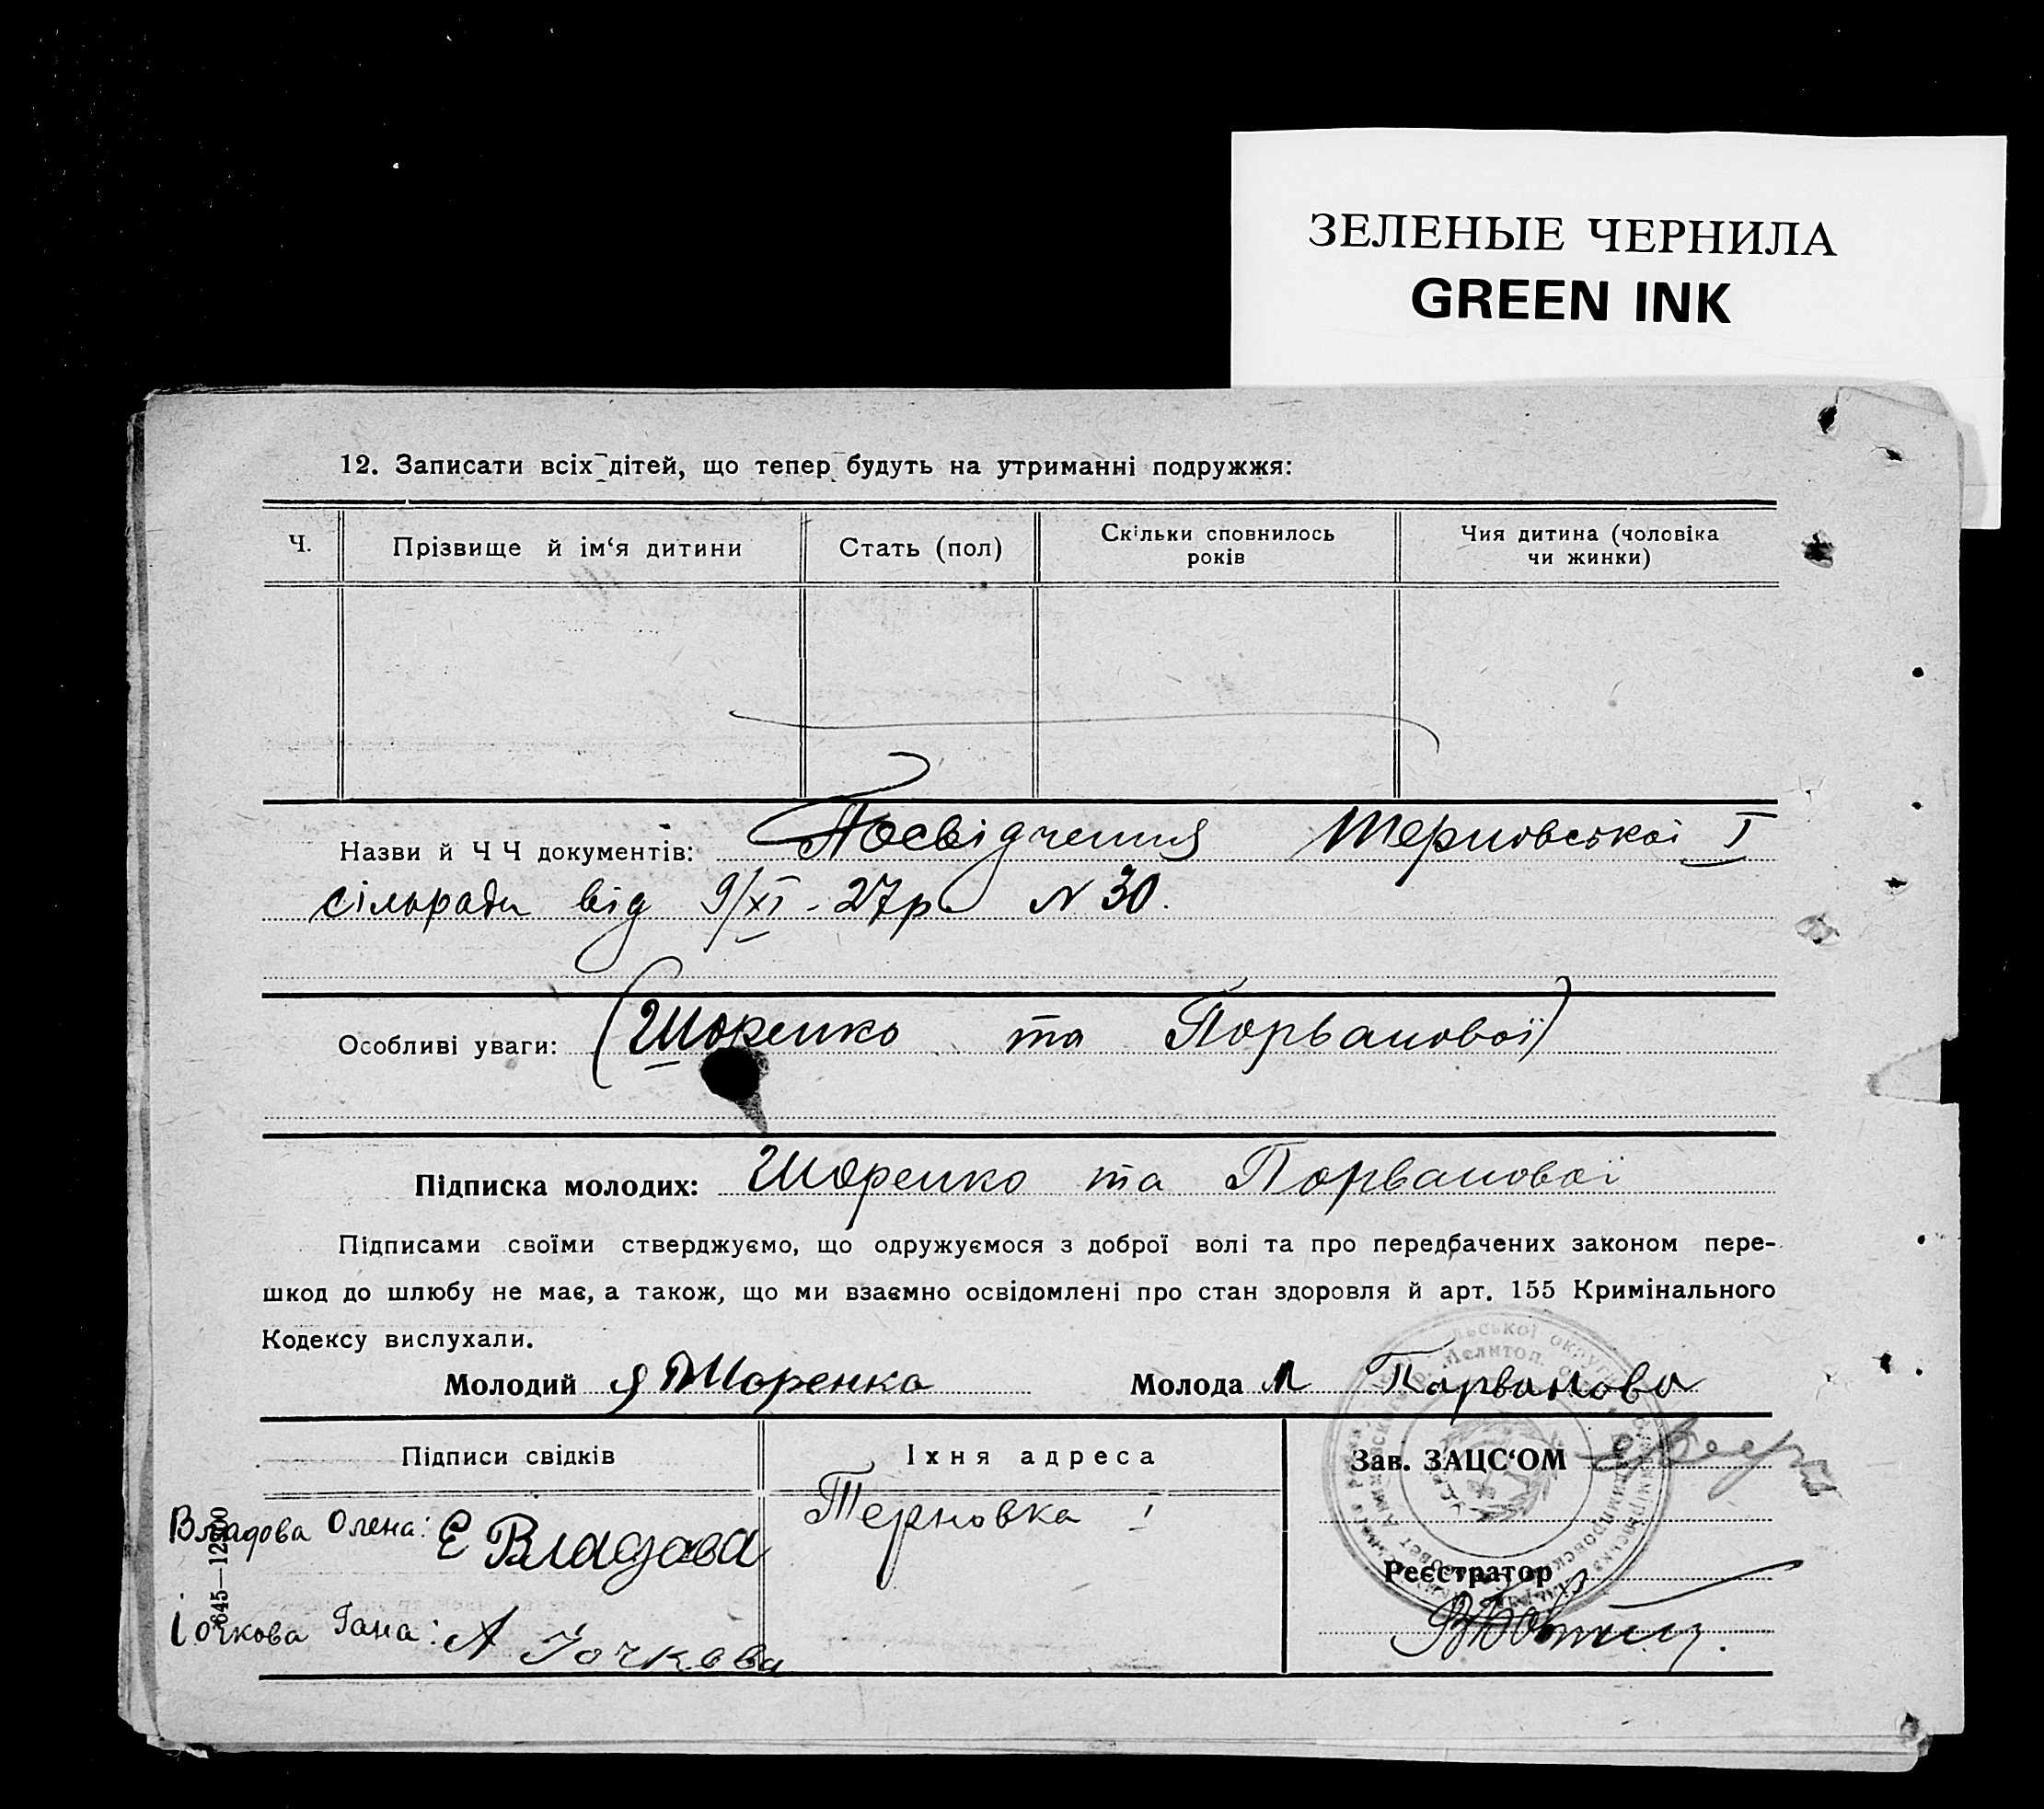 ЗЕЛЕНЫЕ ЧЕРНИЛА
GREEN INK
12. Записати всіх дітей, що тепер будуть на утриманні подружжя:
Ч.
Прізвище й ім‘я дитини
Стать (пол)
Скільки сповнилось
років
Чия дитина (чоловіка
чи жинки)
Назви й Ч Ч документів: Посвідчення Терновської I
сільради від 9/XI - 27р N 30.
Особливі уваги: (Шоренко та Порванової)
Підписка молодих: Шоренко та Порванової
Підписами своїми стверджуємо, що одружуємося з доброї волі та про передбачених законом пере-
шкод до шлюбу не має, а також, що ми взаємно освідомлені про стан здоровля й арт. 155 Кримінального
Кодексу вислухали.
Молодий Шоренко Молода Порванова
Підписи свідків
Іхня адреса
Зав. ЗАЦС‘ОМ
Владова Олена: Е Владова
Терновка I
Реєстратор
Іочкова Гана: А Іочкова
645—12500